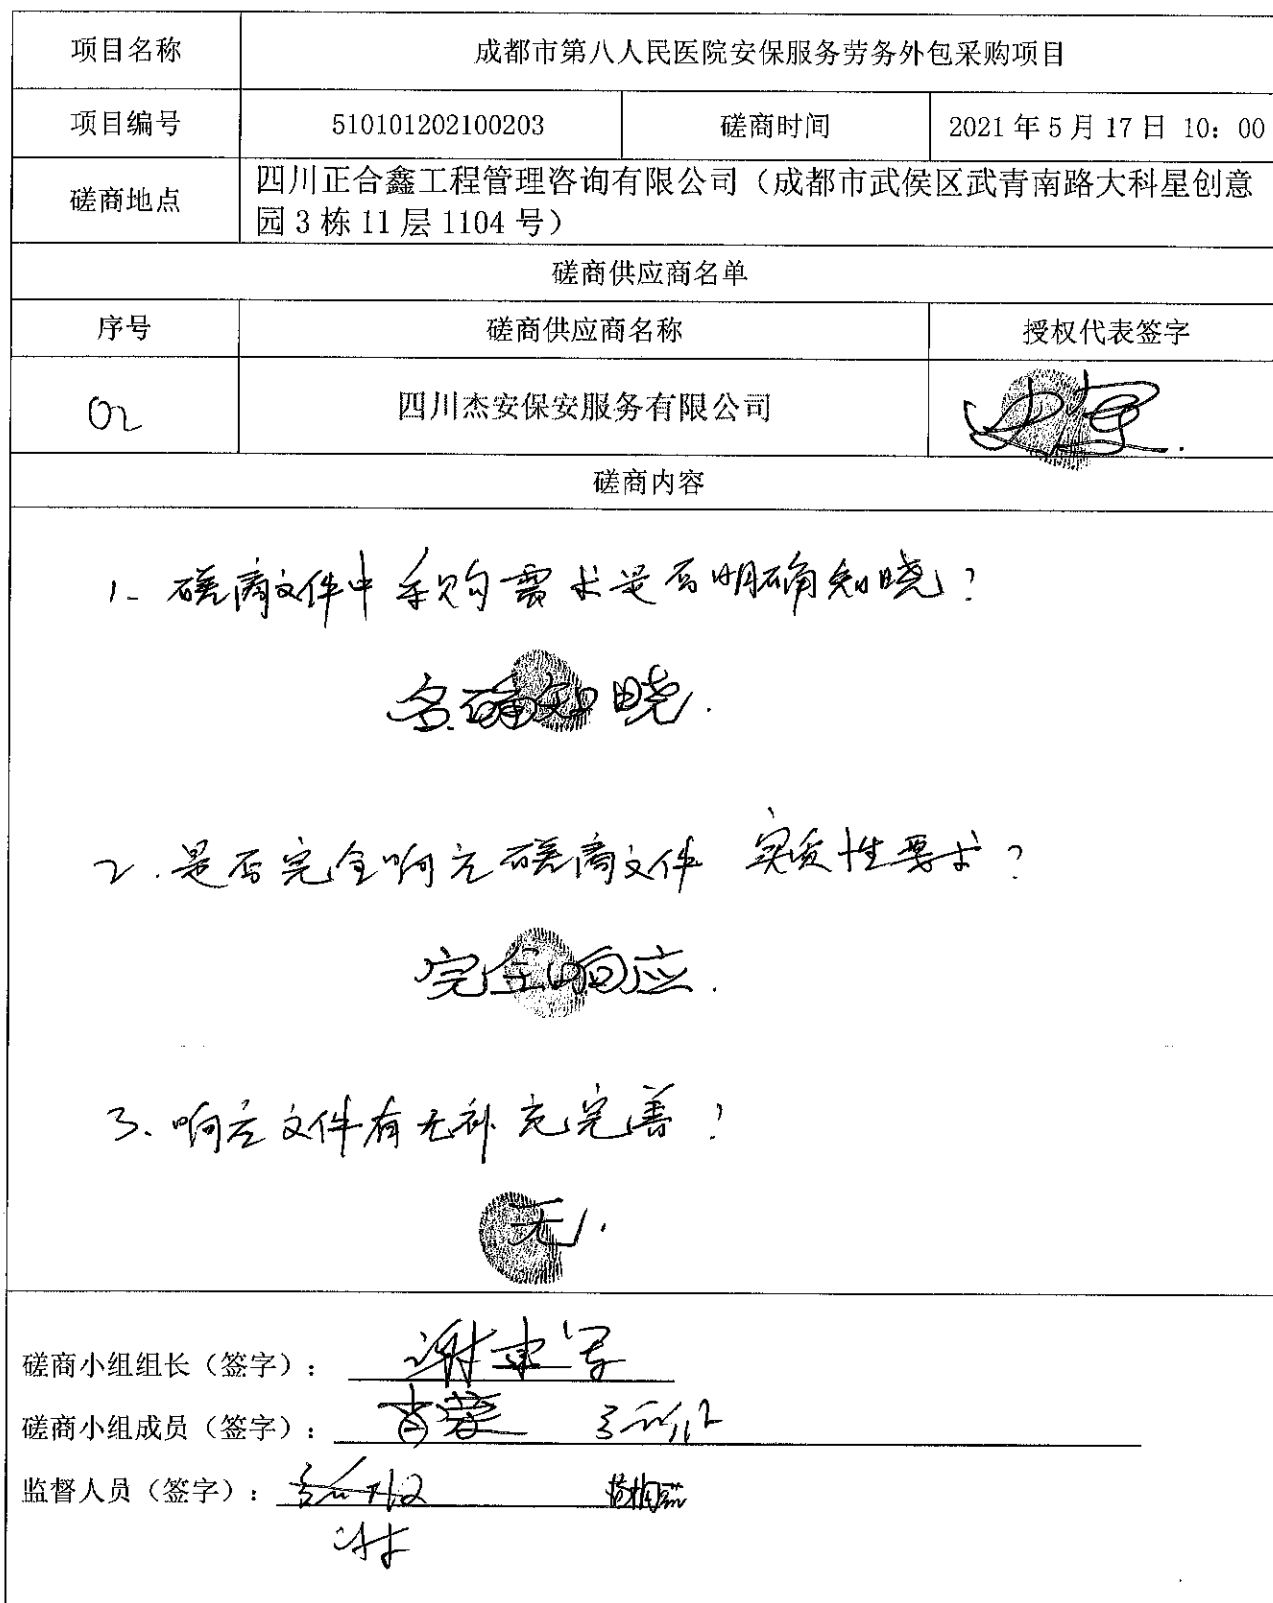 项目名称 成都市第八人民医院安保服务劳务外包采购项目
项目编号 510101202100203 磋商时间 2021年5月17日 10：00
磋商地点 四川正合鑫工程管理咨询有限公司（成都市武侯区武青南路大科星创意
园3栋11层1104号）
磋商供应商名单
序号 磋商供应商名称 授权代表签字
02 四川杰安保安服务有限公司
磋商内容
1. 磋商文件中采购需求是否明确知晓？
名确知晓.
2. 是否完全响应磋商文件 实质性要求？
完全响应.
3. 响应文件有无补充完善？
无.
磋商小组组长（签字）：
磋商小组成员（签字）：
监督人员（签字）：